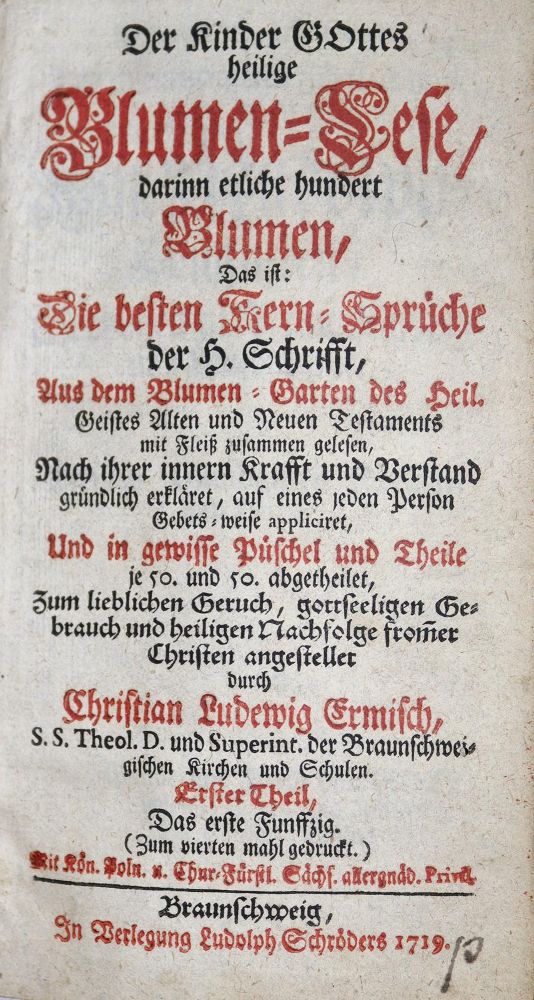 Der Kinder GOttes
heilige
Blumen=Lese,
darinn etliche hundert
Blumen,
Das ist:
Die besten Kern=Sprüche
der H. Schrifft,
Aus dem Blumen=Garten des Heil.
Geistes Alten und Neuen Testaments
mit Fleiß zusammen gelesen,
Nach ihrer innern Krafft und Verstand
gründlich erkläret, auf eines jeden Person
Gebets=weise appliciret,
Und in gewisse Püschel und Theile
je 50. und 50. abgetheilet,
Zum lieblichen Geruch, gottseeligen Ge=
brauch und heiligen Nachfolge from̃er
Christen angestellet
durch
Christian Ludewig Ermisch,
S. S. Theol. D. und Superint. der Braunschwei=
gischen Kirchen und Schulen.
Erster Theil,
Das erste Funffzig.
(Zum vierten mahl gedruckt.)
Mit Kön. Poln. u. Chur=Fürstl. Sächs. allergnäd. Privil.
Braunschweig,
In Verlegung Ludolph Schröders 1719.